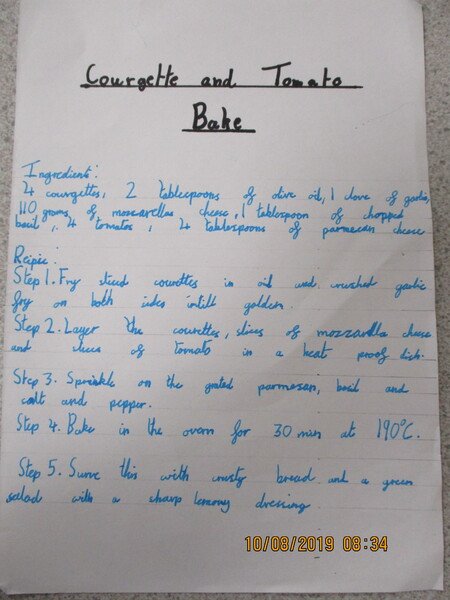 Courgette and Tomato
Bake
Ingredients:
4 courgettes, 2 tablespoons of olive oil, 1 clove of garlic,
110 grams of mozzarella cheese, 1 tablespoon of chopped
basil, 4 tomatoes, 4 tablespoons of parmesan cheese
Recipie:
Step 1. Fry sliced courettes in oil and crushed garlic
fry on both sides intill golden.
Step 2. Layer the courettes, slices of mozzarella cheese
and slices of tomato in a heat proof dish.
Step 3. Sprinkle on the grated parmesan, basil and
salt and pepper.
Step 4. Bake in the oven for 30 min at 190°C.
Step 5. Surve this with crusty bread and a green
salad with a sharp lemony dressing
10/08/2019 08:34